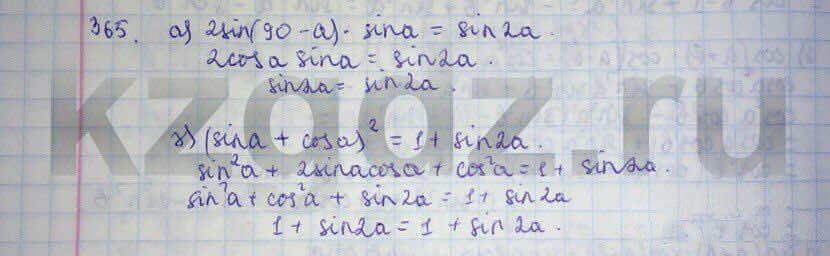 365. а) 2sin(90-a)· sina = sin2a.
2cosa sina = sin2a.
sin2a = sin2a.
г) (sina + cosa)² = 1 + sin2a.
sin²a + 2sinacosa + cos²a = 1 + sin2a.
sin²a + cos²a + sin2a = 1 + sin2a
1 + sin2a = 1 + sin2a.
kzgdz.ru